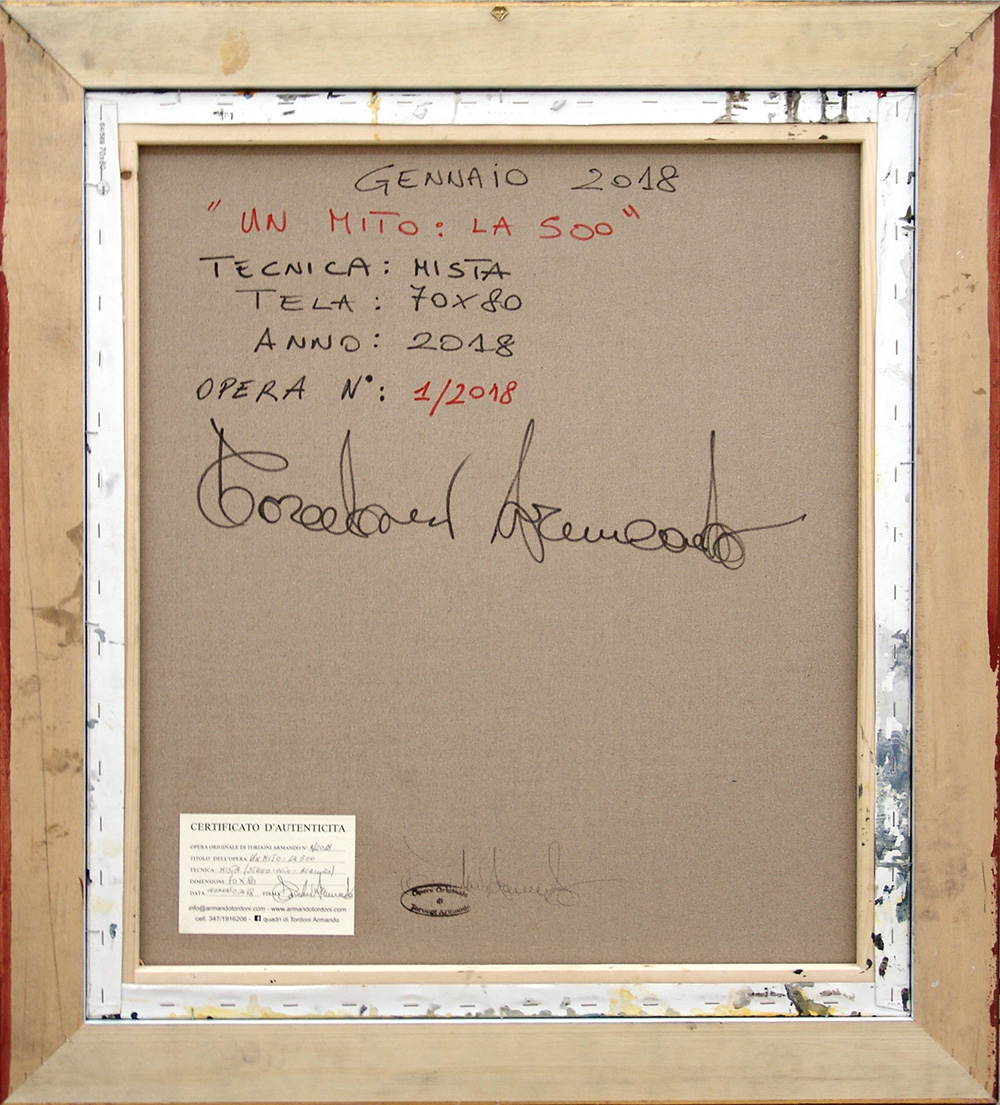 GENNAIO 2018
"UN MITO: LA 500"
TECNICA: MISTA
TELA: 70X80
ANNO: 2018
OPERA N°: 1/2018
Tordoni Armando
CERTIFICATO D'AUTENTICITA
OPERA ORIGINALE DI TORDONI ARMANDO N° 1/2018
TITOLO DELL'OPERA UN MITO: LA 500
TECNICA MISTA
DIMENSIONI 70X80
DATA GENNAIO 2018 FIRMA Tordoni Armando
info@armandotordoni.com - www.armandotordoni.com
cell. 347/1916206 - quadri di Tordoni Armando
Opera Originale
di
Armando
70x80